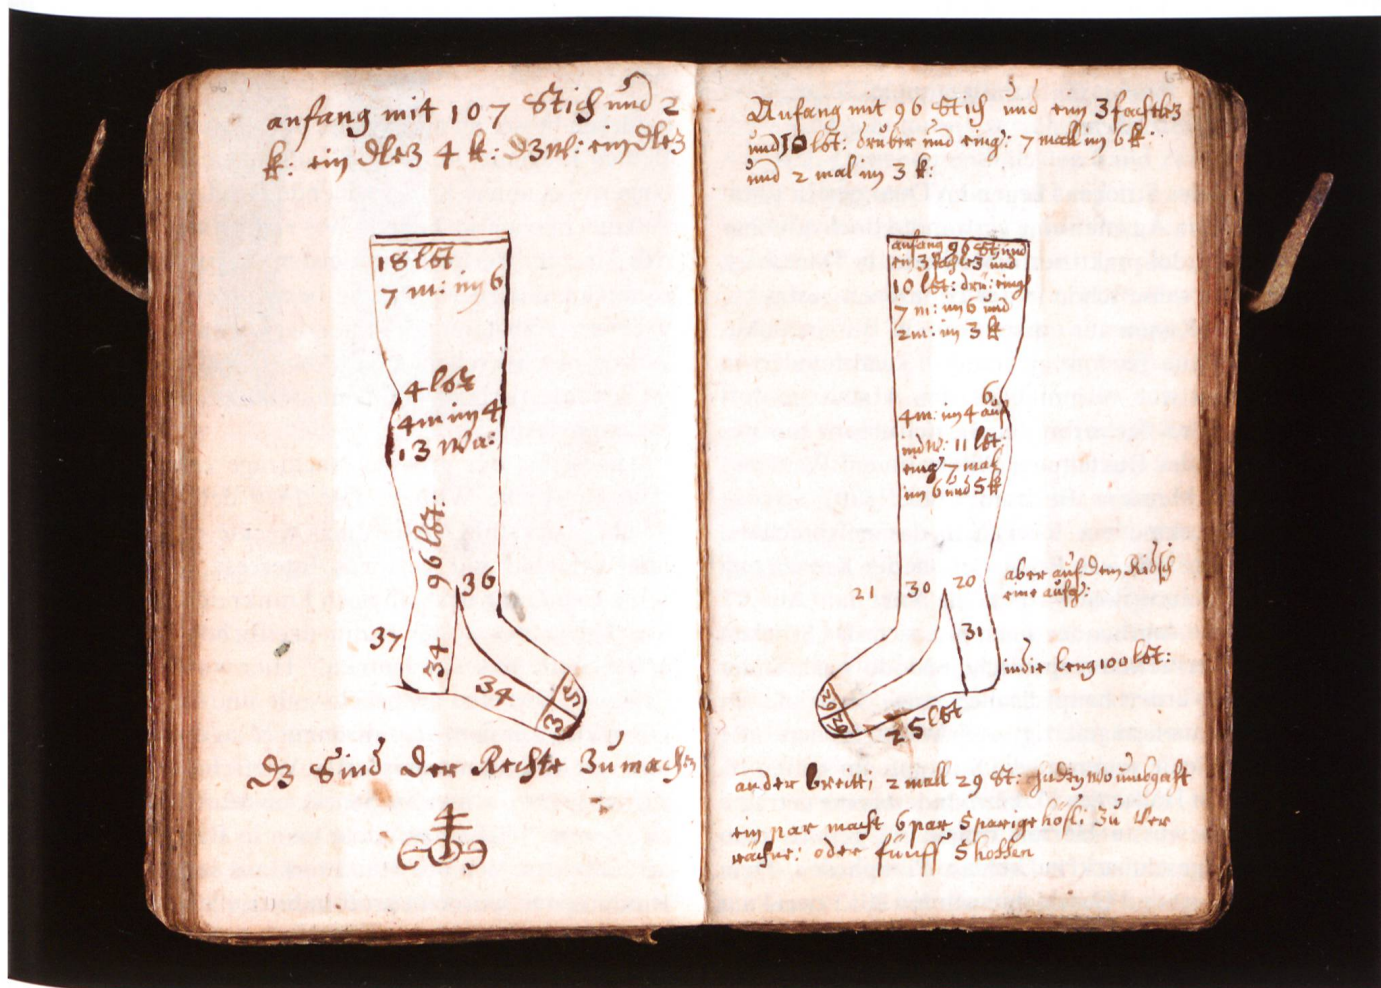 anfang mit 107 Stich und 2
k: ein dlez 4 k: dz w: ein dlez
18 lst
7 m: in 6
4 loz
4 m in 4
13 wa:
96 lst:
36
37
34
34
35
dz Sind der Rechte Zu mache
Anfang mit 96 Stich und ein 3fachlez
und 10 lst: druber und eing: 7 mall in 6 k:
und 2 mal in 3 k:
anfang 96 St und
ein 3fachlez und
10 lst: dru: eing
7 m: in 6 und
2 m: in 3 k
6
4 m: in 4 auf
ind w: 11 lst:
eing 7 mal
im 6 und 5 k
21 30 20
aber auf dem
eine aufg:
31
indie leng 100 lst:
25 lst
an der breitt: 2 mall 29 St:
ein par macht 6 par 5 parige hosli: Zu Ver
oder fünff 5 hossen